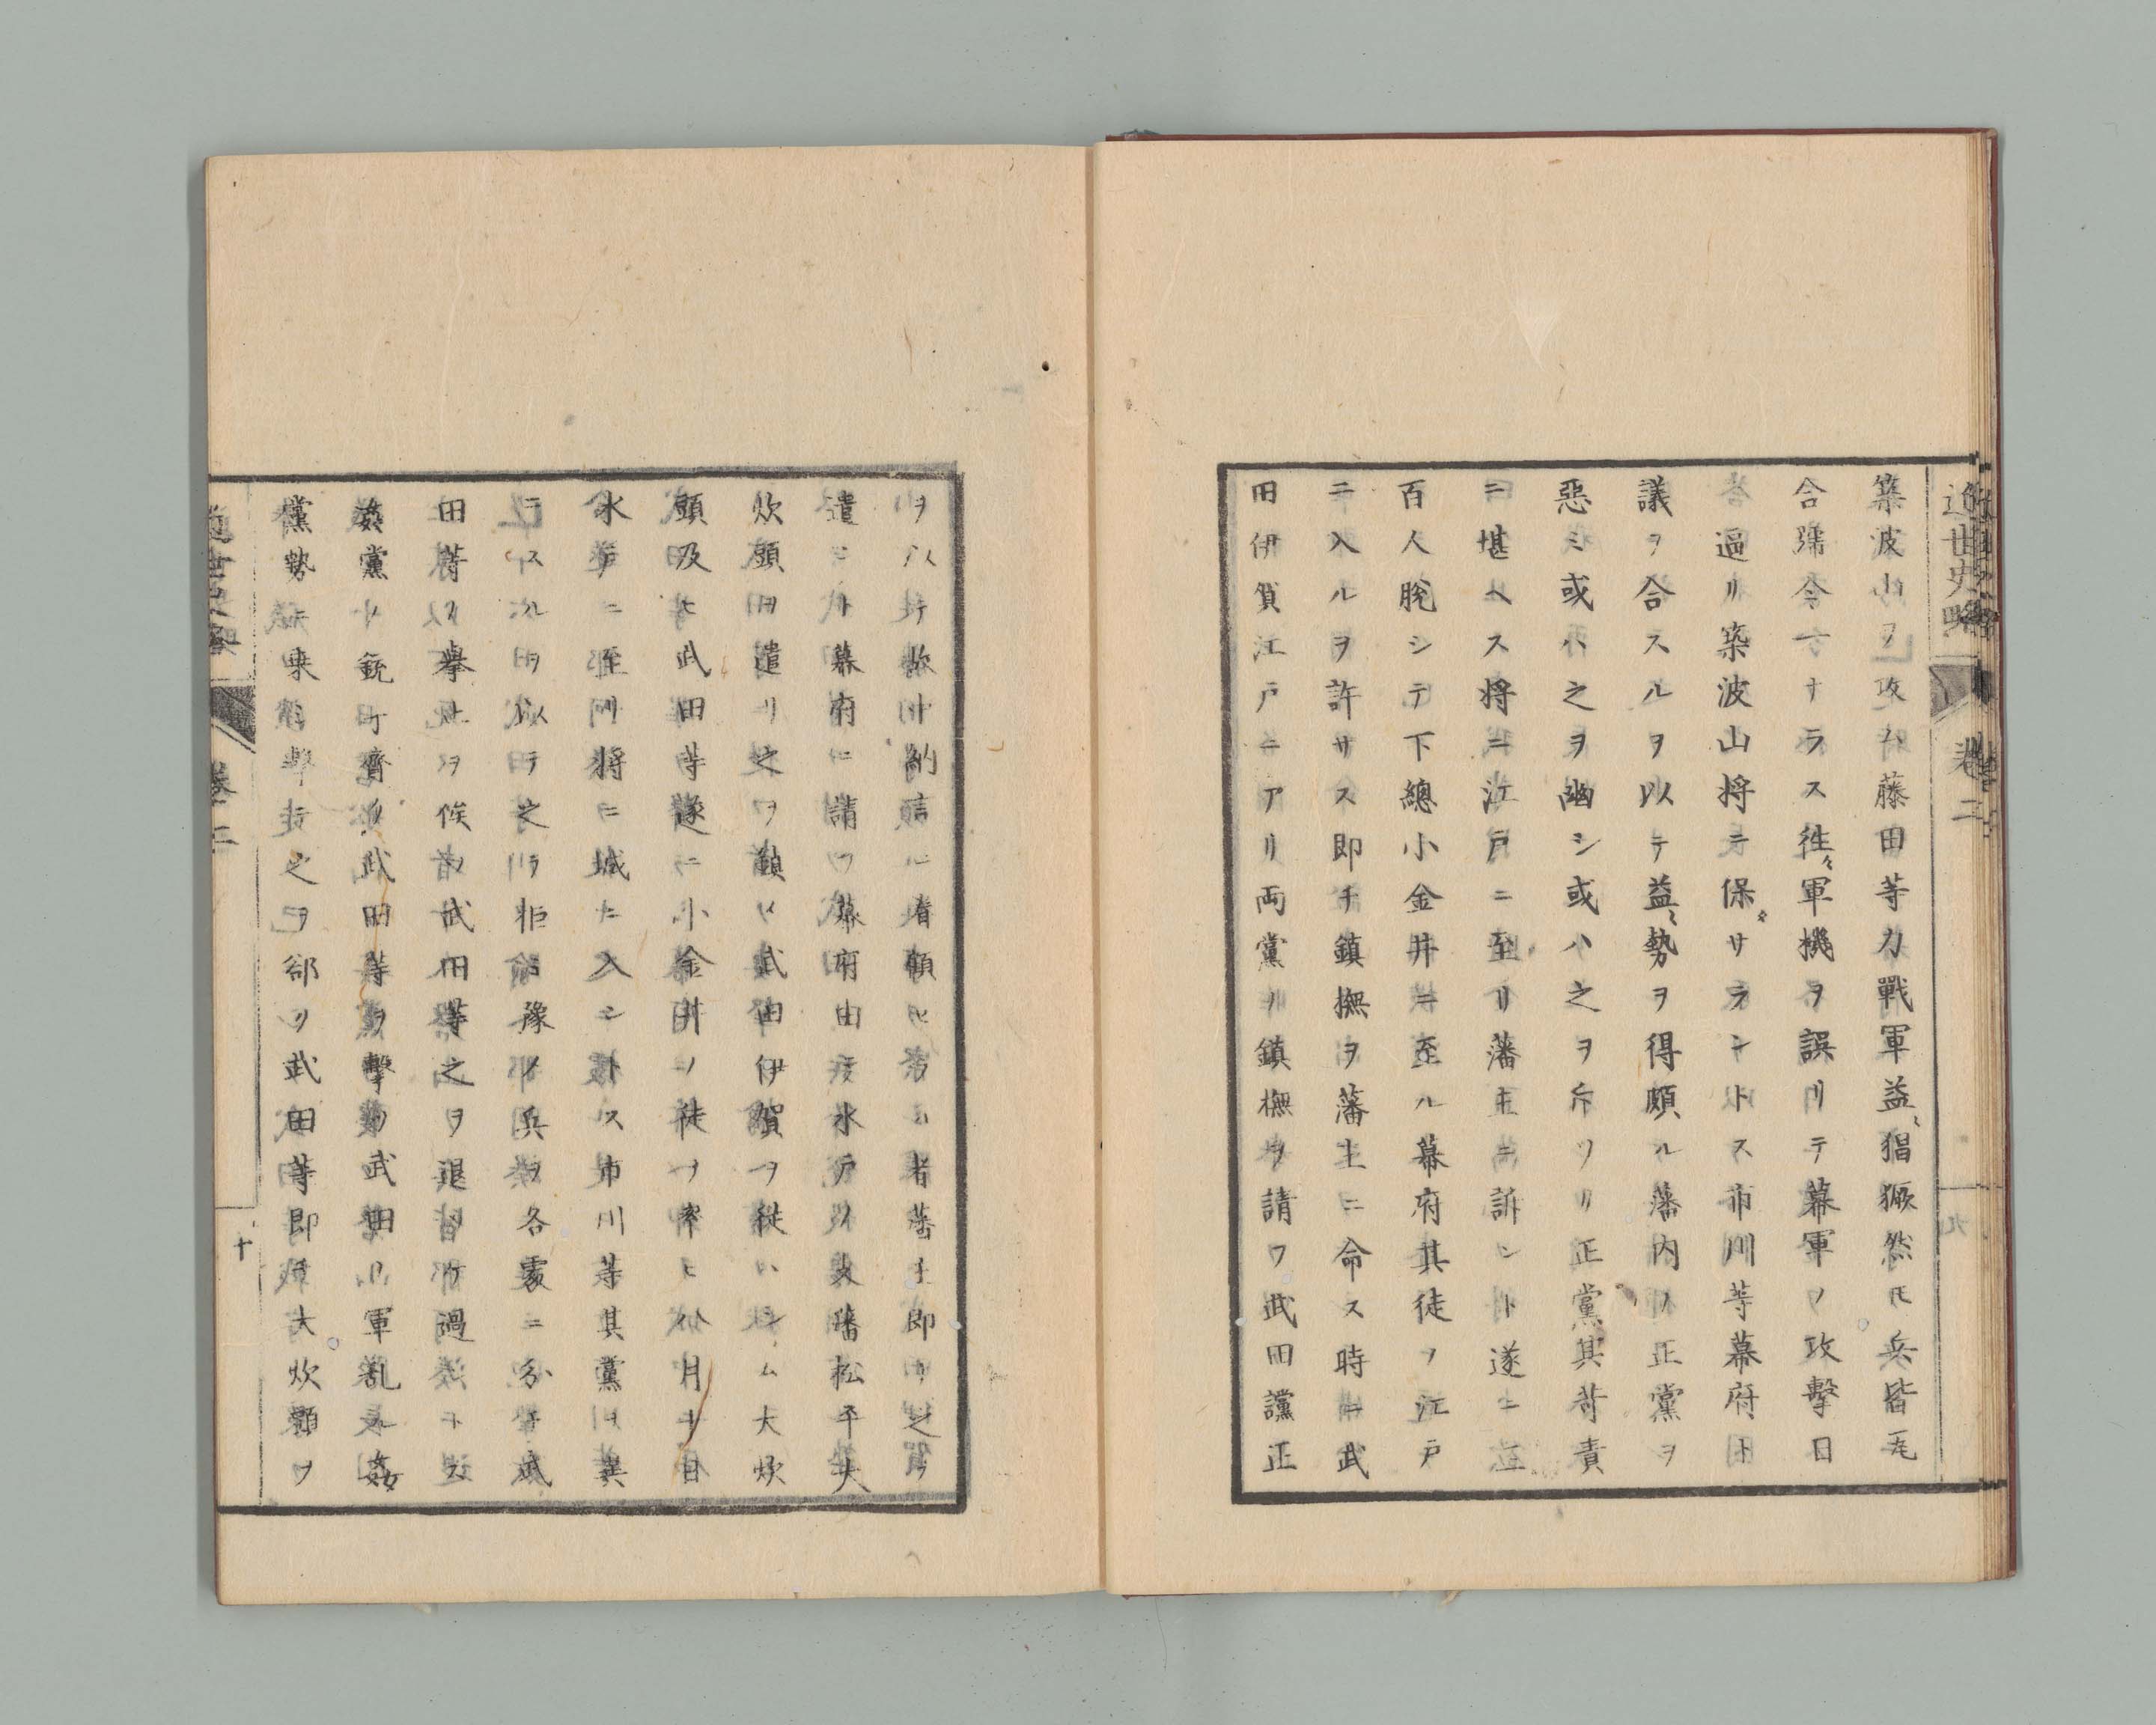 近世史略
卷二
九
築波山ヲ攻ム藤田等力戰軍益〻猖獗然モ兵皆一先
合號令一方ナラス徃〻軍機ヲ誤リテ幕軍ノ攻擊日
逼リ築波山将ニ保サラントス市川等幕府ト
議ヲ合スルヲ以テ益〻勢ヲ得頗ル藩内ノ正黨ヲ
惡ミ或ハ之ヲ幽シ或ハ之ヲ斥ソリ正黨其苛責
ニ堪ヘス将ニ江戸ニ至リ藩主ニ訴ントシ遂ニ
百人脱シテ下總小金井ニ至ル幕府其徒ノ江戸
ニ入ルヲ許サス即チ鎮撫ヲ藩主ニ命ス時ニ武
田伊賀江戸ニアリ両黨ノ鎮撫ヲ請フ武田讜正
ヲ以テ 納 者 者藩主即チ之ヲ
遣ニ 幕府ニ請フ幕府由 水戸ノ支藩松平大
炊頭ヲ遣リ之ヲ鎮メ武田伊賀ヲ従ハシム大炊
頭及ヒ武田等遂ニ小金井ノ徒ヲ率ヒ八月十日
水戸ニ至リ将ニ城ニ入ントス市川等其黨ヲ異
ニスルヲ以テ之ヲ拒 豫メ兵ヲ各處ニ分チ武
田等ノ擧止ヲ候ノ武田等之ヲ退ケ過 ス
姦黨ノ銃町齊リ武田等ヲ擊ツ武田ノ軍亂ル姦
黨勢ニ乗 之ヲ郤リ武田等即チ大炊頭ヲ
近世史略
卷二
十